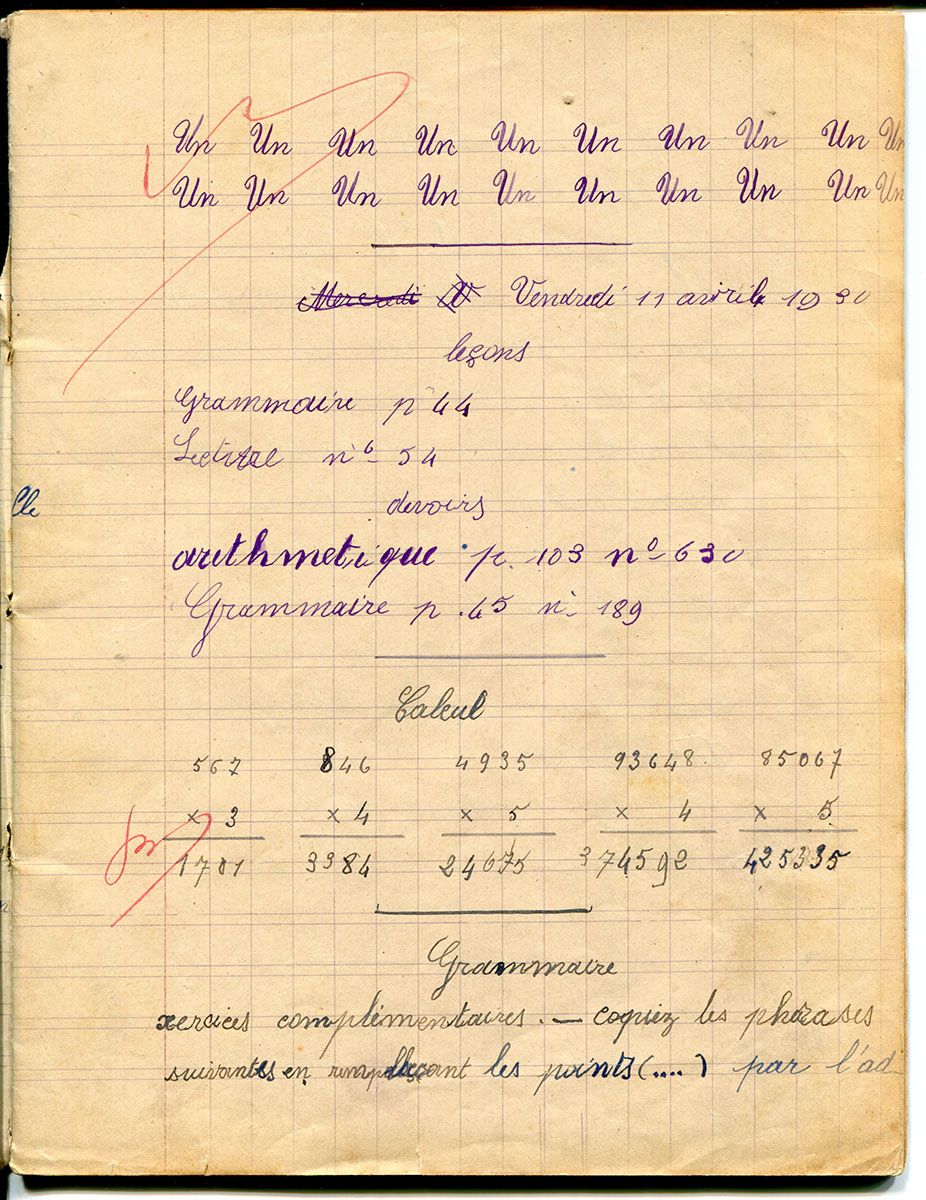 Un Un Un Un Un Un Un Un Un Un
Un Un Un Un Un Un Un Un Un Un
Mercredi V Vendredi 11 avril 1930
leçons
Grammaire p 44
n° 54
Cle
devoirs
arithmetique p. 103 n° 630
Grammaire p. 45 n° 189
Calcul
567 846 4935 93648 85067
× 3 × 4 × 5 × 4 × 5
1701 3384 24675 374592 425335
Grammaire
xercices complémentaires. — copiez les phrases
suivantes en remplaçant les points (....) par l'ad